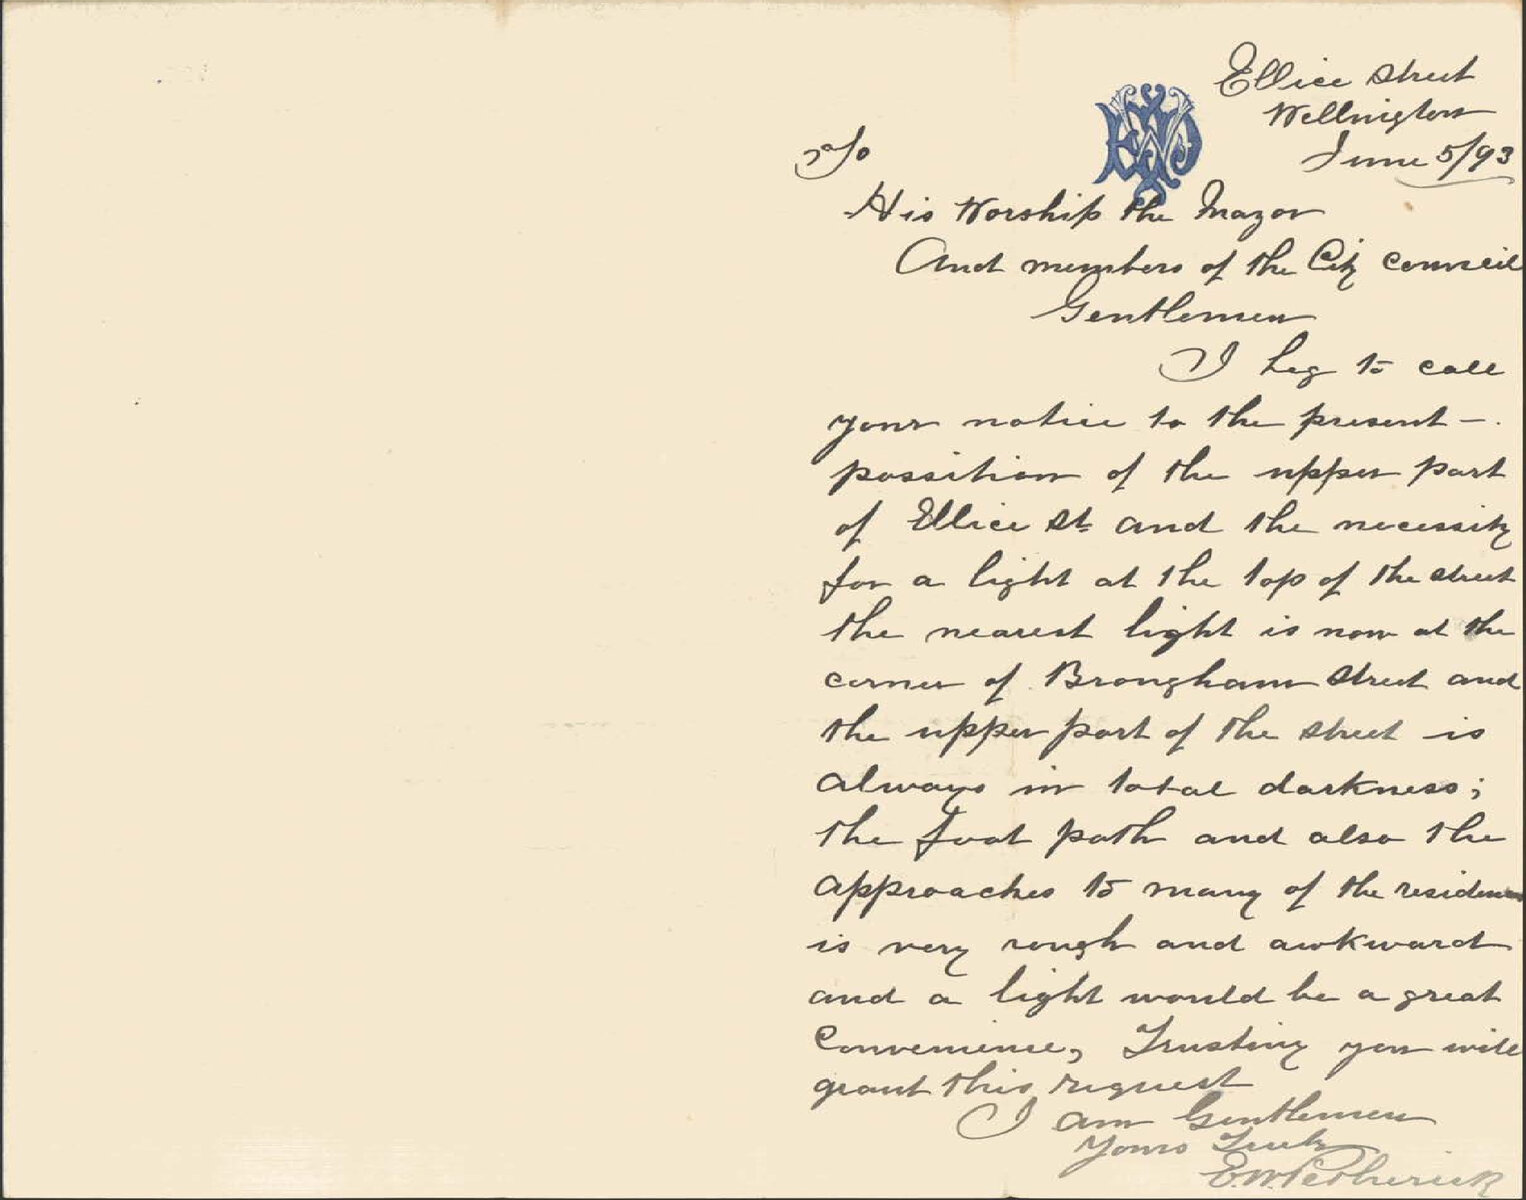 Ellice Street
Wellington
June 5/93
To
His Worship the Mayor
And members of the City Council
Gentlemen
I beg to call
your notice to the present -
possition of the upper part
of Ellice St and the necessity
for a light at the top of the street
the nearest light is now at the
corner of Brougham Street and
the upper part of the street is
always in total darkness;
the foot path and also the
approaches to many of the
is very rough and awkward
and a light would be a great
convenience, Trusting you will
grant this request
I am Gentlemen
Yours Truly
E.W. Petherick